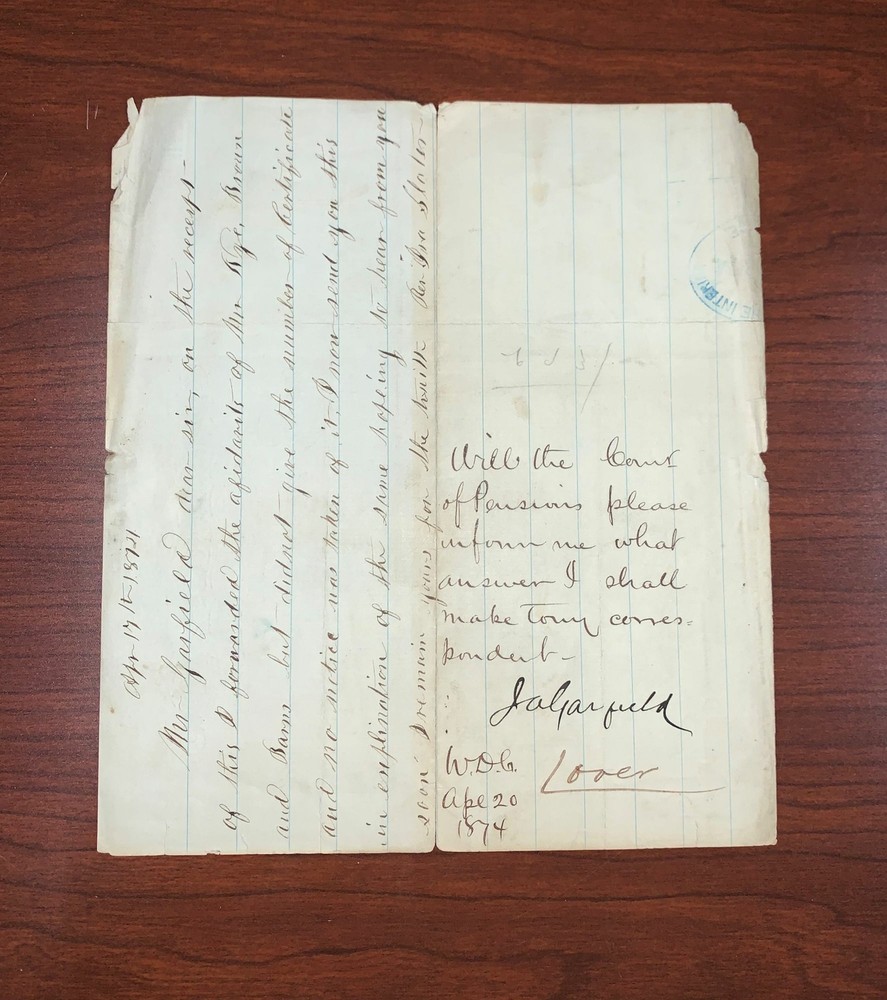 Apr 17th 1874
Mr Garfield dear sir, on the receys-
of this I forwarded the afidavits of Mr Rye, Brown
and Barns but did not give the number of Certificate
and no notice was taken of it. I now send you this
in explination of the same hopeing to hear from you
soon I remain yours for the Per Ira Slater
E INTERI
Will the Comr
of Pensions please
inform me what
answer I shall
make to my corres=
pondent-
JAGarfield
W.D.C.
Apl 20
1874
Over